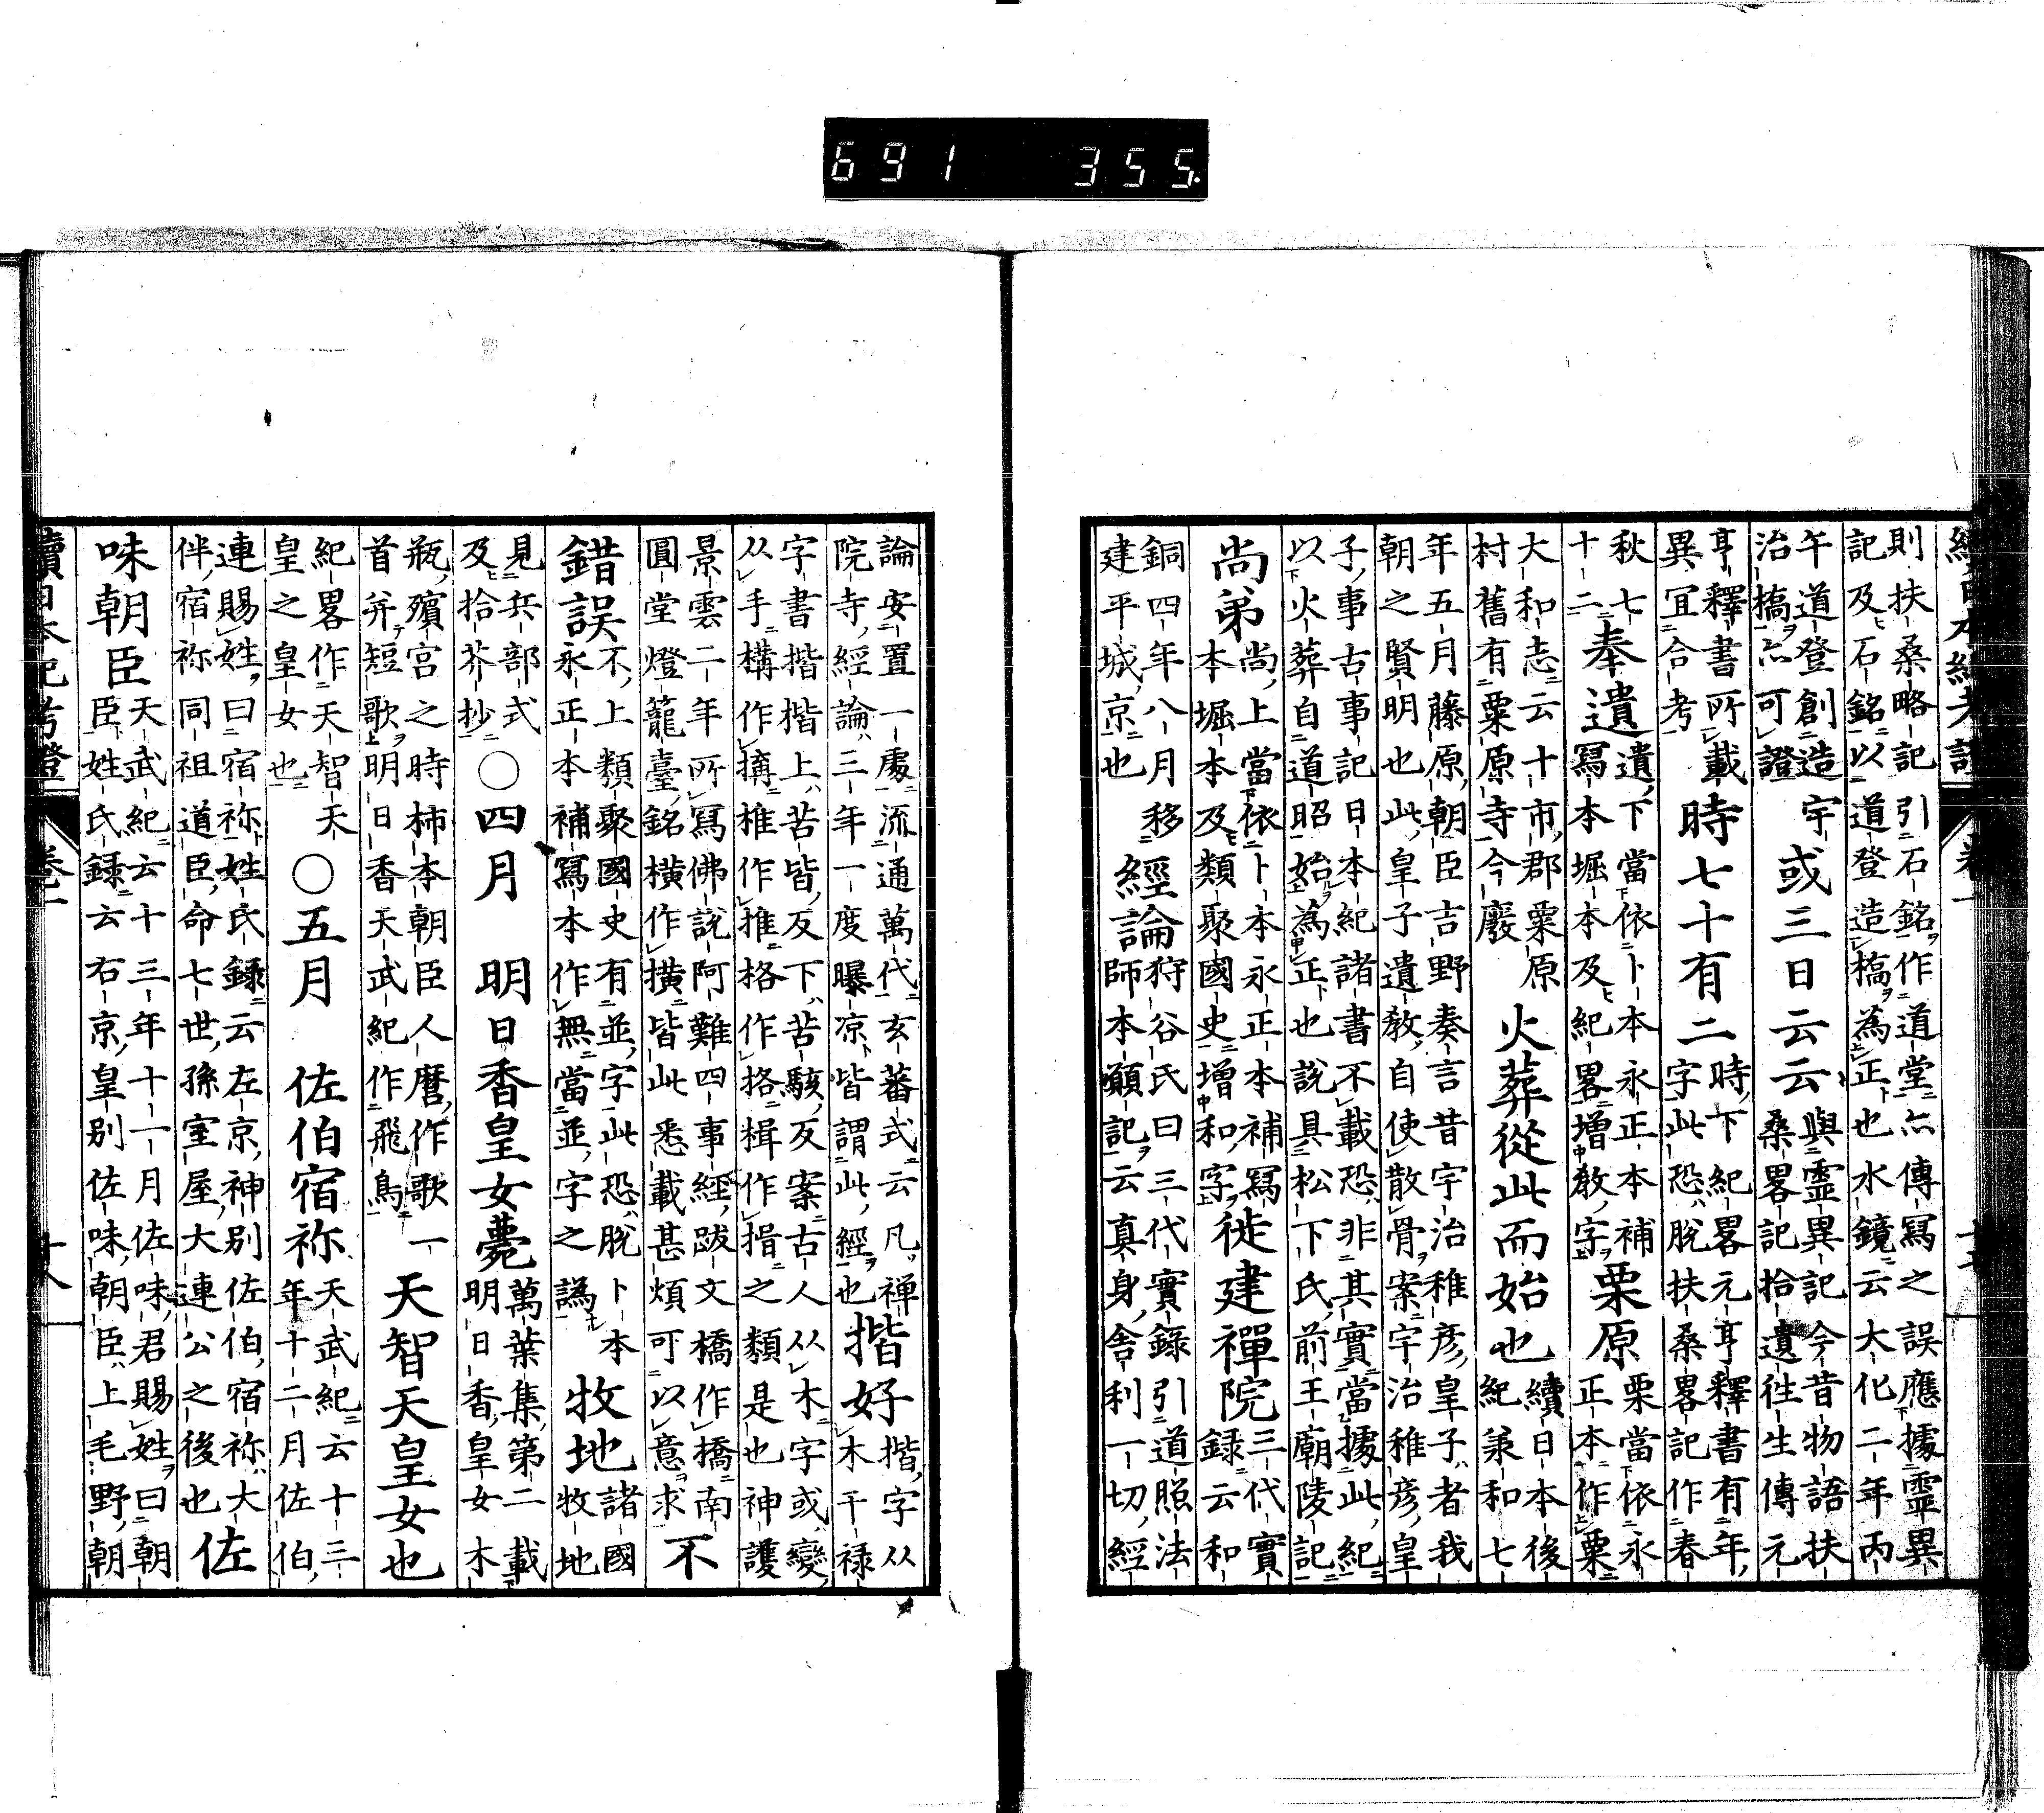 691 355
續日本紀考證 卷一
則扶桑略記引石銘作道堂亦傳寫之誤應據霊異
記及石銘以道登造橋為正也水鏡云大化二年丙
午道登創造宇
治橋亦可證
或三日云云
與霊異記今昔物語扶
桑畧記拾遺徃生傳元
亨釋書所載
異冝合考
時七十有二
時下紀畧元亨釋書有年
字此恐脫扶桑畧記作春
秋七
十二
奉遺
遺下當依卜本永正本補
寫本堀本及紀畧増敎字
栗原
栗當依永
正本作粟
大和志云十市郡粟原
村舊有粟原寺今廢
火葬從此而始也
續日本後
紀羕和七
年五月藤原朝臣吉野奏言昔宇治稚彦皇子者我
朝之賢明也此皇子遺敎自使散骨案宇治稚彦皇
子事古事記日本紀諸書不載恐非其實當據此紀
以火葬自道昭始為正也說具松下氏前王廟陵記
尚弟
尚上當依卜本永正本補寫
本堀本及類聚國史増和字
徙建禪院
三代實
録云和
銅四年八月移
建平城京也
經論
狩谷氏曰三代實錄引道照法
師本願記云真身舎利一切經
論安置一處流通萬代玄蕃式云凡禅
院寺經論三年一度曝凉皆謂此經也
揩好
揩字从
木干禄
字書揩揩上苦皆反下苦駭反案古人从木字或變
从手構作搆椎作推格作挌楫作揖之類是也神護
景雲二年所寫佛說阿難四事經跋文橋作撟南
圓堂燈籠臺銘横作擴皆此悉載甚煩可以意求
不
錯誤
不上類聚國史有並字此恐脫卜本
永正本補寫本作無當並字之譌
牧地
諸國
牧地
見兵部式
及拾芥抄
○四月
明日香皇女薨
萬葉集第二載
明日香皇女木
瓶殯宮之時柿本朝臣人麿作歌一
首并短歌明日香天武紀作飛鳥
天智天皇女也
紀畧作天智天
皇之皇女也
○五月
佐伯宿祢
天武紀云十三
年十二月佐伯
連賜姓曰宿祢姓氏録云左京神別佐伯宿祢大
伴宿祢同祖道臣命七世孫室屋大連公之後也
佐
味朝臣
天武紀云十三年十一月佐味君賜姓曰朝
臣姓氏録云右京皇别佐味朝臣上毛野朝
續日本紀考證 卷一 十八